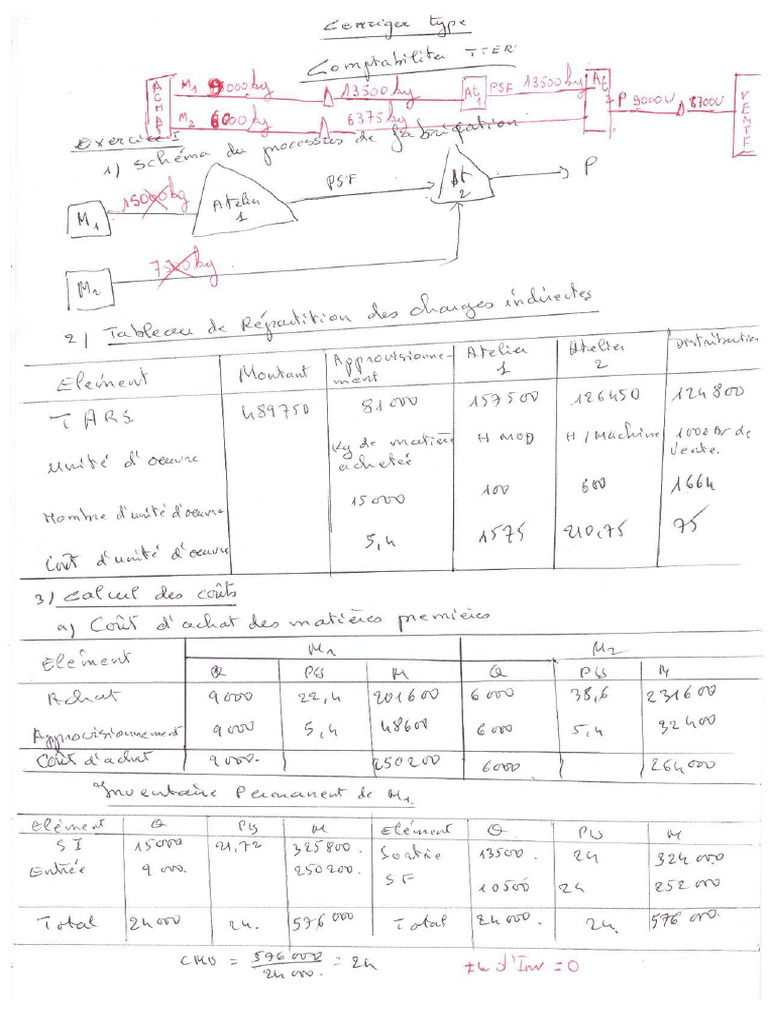 Corriger type
Comptabilité TTER
ACHAT M1 9000kg 13500kg At 1 PSF 13500kg At 2 P 9000U 8700U VENTE
M2 6000kg 6375kg
Exercice I
1) Schéma du processus de fabrication
M1 15000kg Atelier 1 PSF At 2 P
M2 7500kg
2) Tableau de Répartition des charges indirectes
Elément Montant Approvisionne-ment Atelier 1 Atelier 2 Distribution
TARS 489750 81000 157500 126450 124800
Unité d'oeuvre Kg de matière achetée H MOD H/Machine 1000 Br de Vente.
Nombre d'unité d'oeuvre 15000 100 600 1664
Coût d'unité d'oeuvre 5,4 1575 210,75 75
3) Calcul des coûts
a) Coût d'achat des matières premières
Elément M1 M2
Q PU M Q PU M
Achat 9000 22,4 201600 6000 38,6 231600
Approvisionnement 9000 5,4 48600 6000 5,4 32400
Coût d'achat 9000. 250200 6000 264000
Inventaire Permanent de M1.
Elément Q PU M Elément Q PU M
SI 15000 21,72 325800 Sortie 13500. 24 324000
Entrée 9000. 250200. SF 10500 24 252000
Total 24000 24. 576000 Total 24000. 24. 576000.
CMU = 576000 / 24000. = 24 ± d'Inv = 0